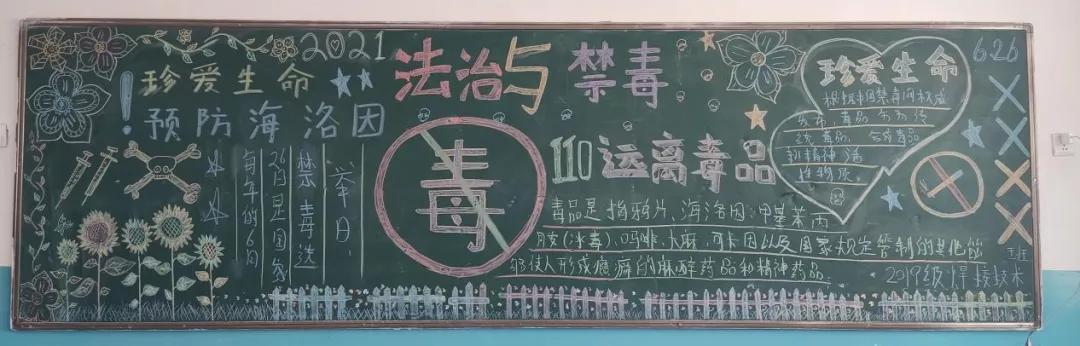 2021
珍爱生命
！预防海洛因
法治与禁毒
毒
110远离毒品
举日
禁毒选
26日是国家
每年的6月
毒品是指鸦片、海洛因、甲基苯丙
胺（冰毒）、吗啡、大麻、可卡因以及国家规定管制的其他能
够使人形成瘾癖的麻醉药品和精神药品。
珍爱生命
毒品
毒品
精神
6.26
2019级焊接技术